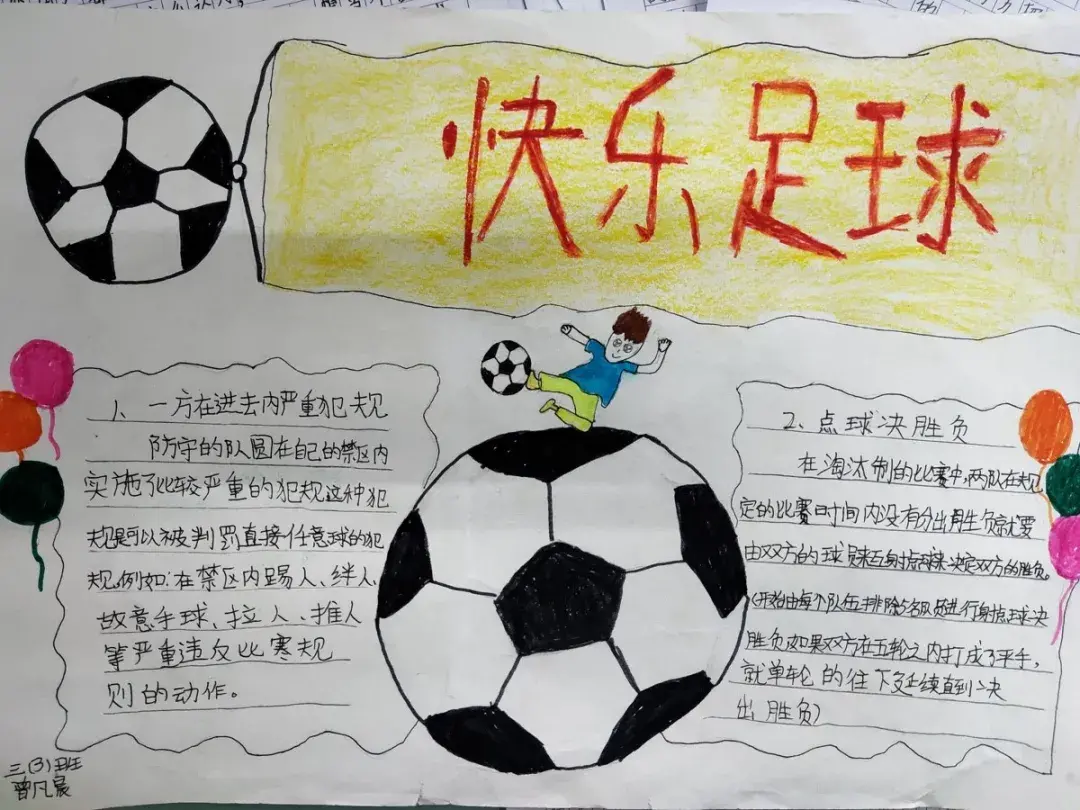 快乐足球
1、一方在进去内严重犯规
防守的队圆在自己的禁区内
实施了比较严重的犯规这种犯
规是可以被判罚直接任意球的犯
规,例如:在禁区内踢人、绊人、
故意手球、拉人、推人
等严重违反比寒规
则的动作。
2、点球决胜负
在淘汰制的比赛中,两队在规
定的比赛时间内没有分出胜负就要
由双方的球员来互射点球来决定双方的胜负。
(开始由每个队伍排除5名队员进行射点球决
胜负,如果双方在五轮之内打成了平手,
就单轮的往下延续直到决
出胜负)
三(3)班
曾凡宸